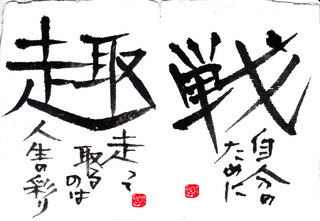 戦
自分の
ために
趣
走って
取るのは
人生の彩り